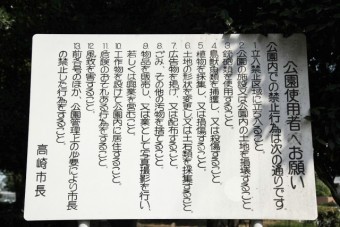 公園使用者へお願い
公園内での禁止行為は次の通りです。
1 立入禁止区域に立ち入ること。
2 公園の施設又は公園内の土地を損壊すること。
4 鳥獣魚類を捕獲し、又は殺傷すること。
5 植物を採集し、又は損傷すること。
6 土地の形状を変更し又は土石類を採集すること。
7 広告物を掲げ、又は配布すること。
8 ごみ、その他の汚物を捨てること。
9 物品を販布し、又は業として写真撮影を行い、
若しくは興業を営むこと。
10 工作物を設けて公園内に居住すること。
11 危険のおそれある行為をすること。
12 風致を害すること。
13 前各号のほか、公園管理上の必要により市長
の禁止した行為をすること。
高崎市長